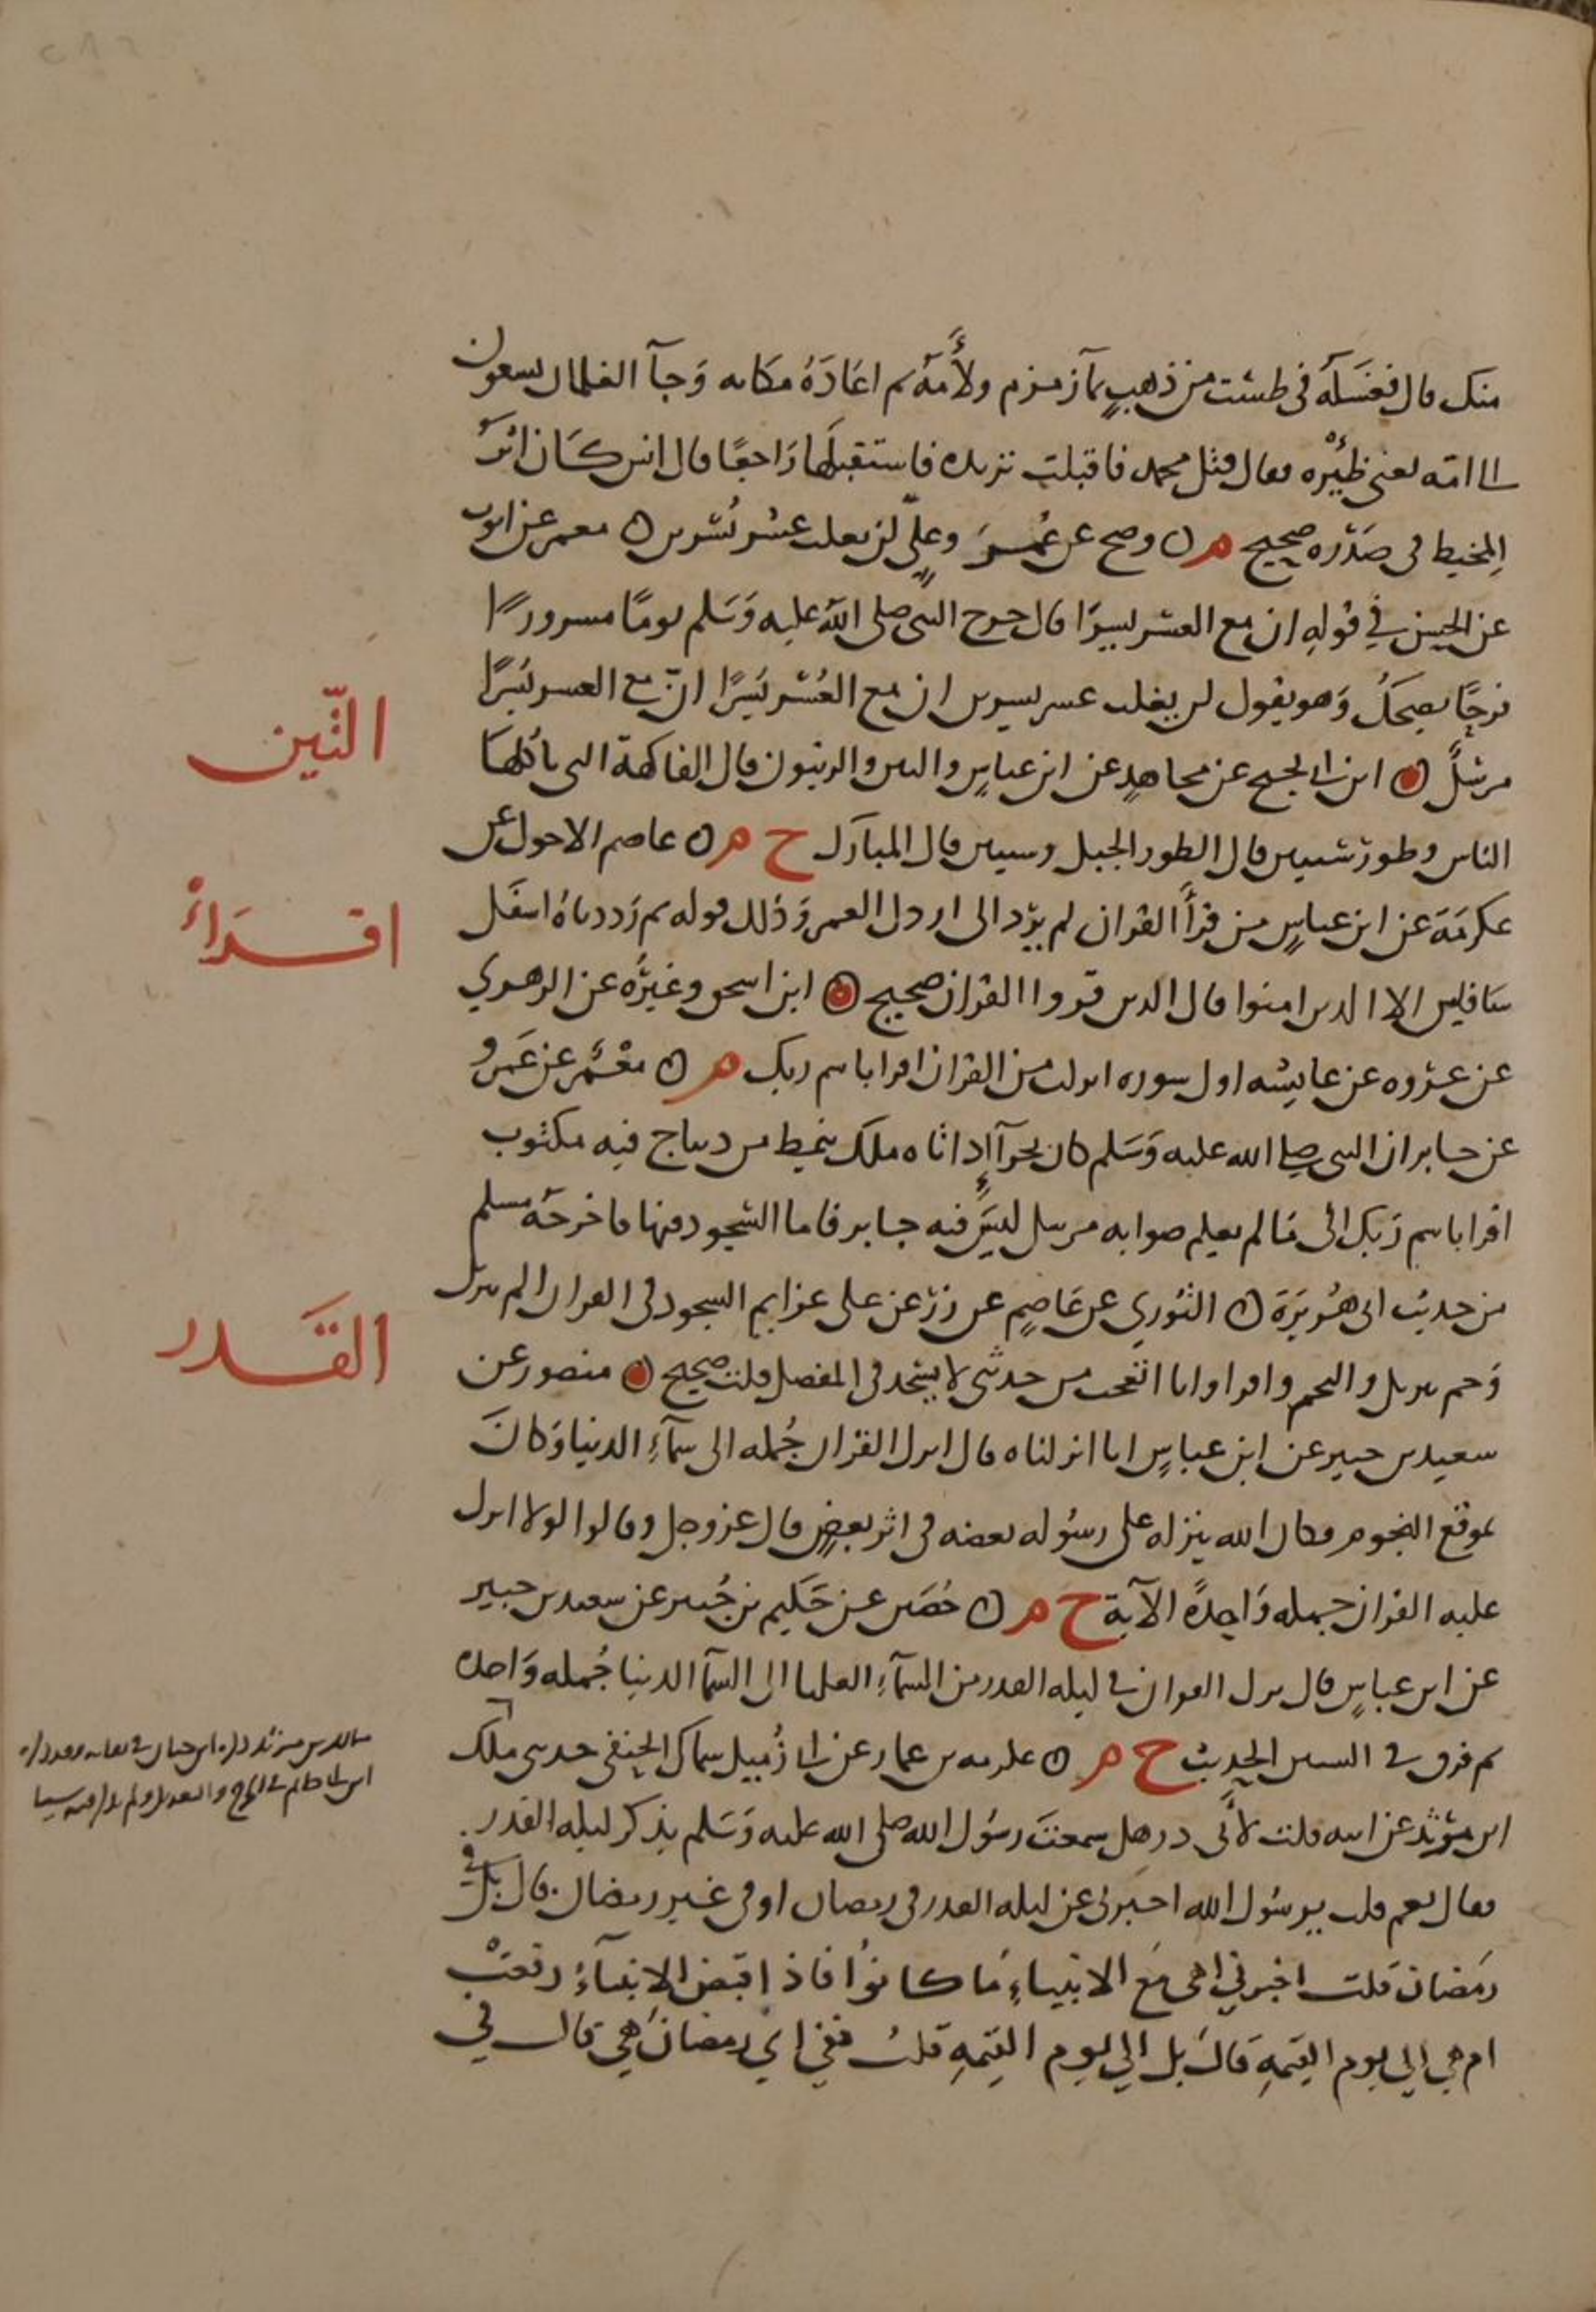 منك قال فغسَله فى طشت من ذهبٍ بمآ زمزم ولأَمَهُ ثم اعَادَهُ مكانه وَجآ الغلمان يسعون
الى امّه يعنى ظِئْرُه فقال قتل محمد فاقبلت تريده فاستقبلها رَاجعًا قال انس كَان اثر
المِخيط فى صَدْره صحيح م ٥ وصح عن عُمَرَ وعليٍّ لن يغلب عسْر يُسْرين ٥ معمر عن ايوب
عن الحسن فى قولهِ ان مع العسر يسرًا قال خرج النبى صلى الله عليه وَسَلم يومًا مسرورًا
فرحًا يضحكُ وَهو يقول لن يغلب عسر يسرين ان مع العُسْر يُسْرًا انّ مع العسر يُسْرًا
مرسَلٌ ٥ ابن ابى نجيح عن مجاهدٍ عن ابن عباسٍ والتين والزيتون قال الفاكهة التى ياكلها
الناس وطور سينين قال الطور الجبل وسينين قال المبارَك خ م ٥ عاصم الاحول عن
عكرمَة عن ابن عباسٍ من قرأ القرآن لم يرد الى ارذل العمر وَذلك قوله ثم رَددناهُ اسفَل
سَافلين الا الذين امنوا قال الذين قرووا القرآن صحيح ٥ ابن اسحق وغيرُه عن الزهري
عن عروه عن عايشه اول سوره انزلت من القرآن اقرا باسم ربك م ٥ معْمَر عن عَمرو
عن جابر ان النبى صلى الله عليه وَسَلم كان بحرآءٍ إذ اتاه ملك بنمط من ديباج فيه مكتوب
اقرا باسم رَبك الى مَا لم يعلم صوابه مرسل ليسَ فيه جابر فاما السجود فيها فاخرجَه مسلم
من حديث ابى هُريرَة ٥ الثوري عن عَاصمٍ عن زرّ عن على عزايم السجود فى القران الم تنزيل
وَحم تنزيل والنجم واقرا وانا اتعجب من حدثنى لا يسجد فى المفصل قلت صحيح ٥ منصور عن
سعيد بن جبير عن ابن عباسٍ انا انزلناه قال انزل القرآن جُمله الى سمآءِ الدنيا وَكانَ
بموقع النجوم وكان الله ينزله على رسُوله بعضه فى اثر بعضٍ قال عز وجل وقالوا لولا انزل
عليه القرآن جمله وَاحِدةً الآية خ م ٥ حُصَين عن حَكيم بن جُبير عن سعيد بن جبير
عن ابن عباسٍ قال نزل القرآن فى ليله القدر من السمآءِ العليا الى السمآ الدنيا جُمله وَاحده
ثم فرق فى السنين الحديث خ م ٥ عكرمه بن عمار عن ابى زُميل سماك الحنفى حدثنى ملك
ابن مرثد عن ابيه قلت لأبى ذر هل سمعتَ رسُول الله صلى الله عليه وَسَلم يذكر ليله القدر
فقال نعم قلت يرسُول الله اخبرنى عن ليله القدر فى رمضان او فى غير رمضان . قال بل فى
رمَضان قلت اخبرني اهى مَع الانبياءِ مَا كانوُا فاذا قبض الانبيآءُ رفعَتْ
ام هي إلى يوم القيمهِ قالَ بل إلى يوم القيمهِ قلتُ ففي اي رمضانَ هي قال في
التّين
اقرَاء
القَدر
مالك بن مرثد ذكره ابن حبان فى ثقاته وقد ذكره
ابن ابى حاتم فى الجرح والتعديل ولم يذكر فيه شيا